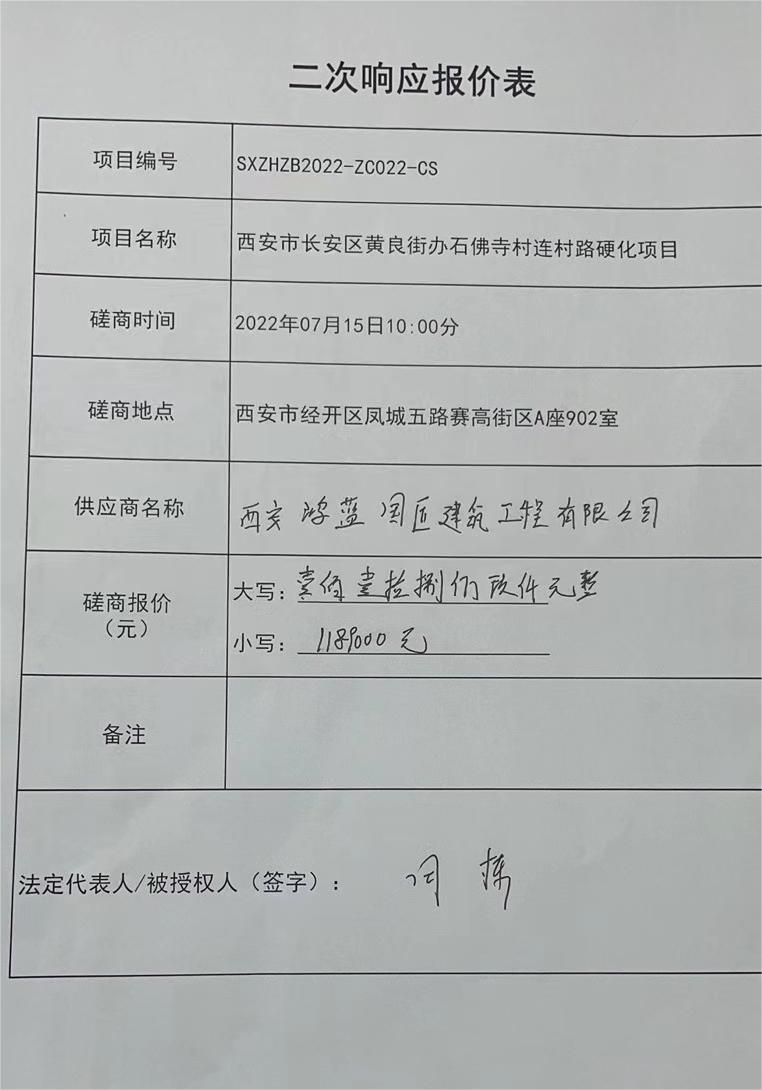 二次响应报价表
项目编号
SXZHZB2022-ZC022-CS
项目名称
西安市长安区黄良街办石佛寺村连村路硬化项目
磋商时间
2022年07月15日10:00分
磋商地点
西安市经开区凤城五路赛高街区A座902室
供应商名称
西安鸿蓝国匠建筑工程有限公司
磋商报价
（元）
大写：壹佰壹拾捌仟玖仟元整
小写：1189000元
备注
法定代表人/被授权人（签字）：